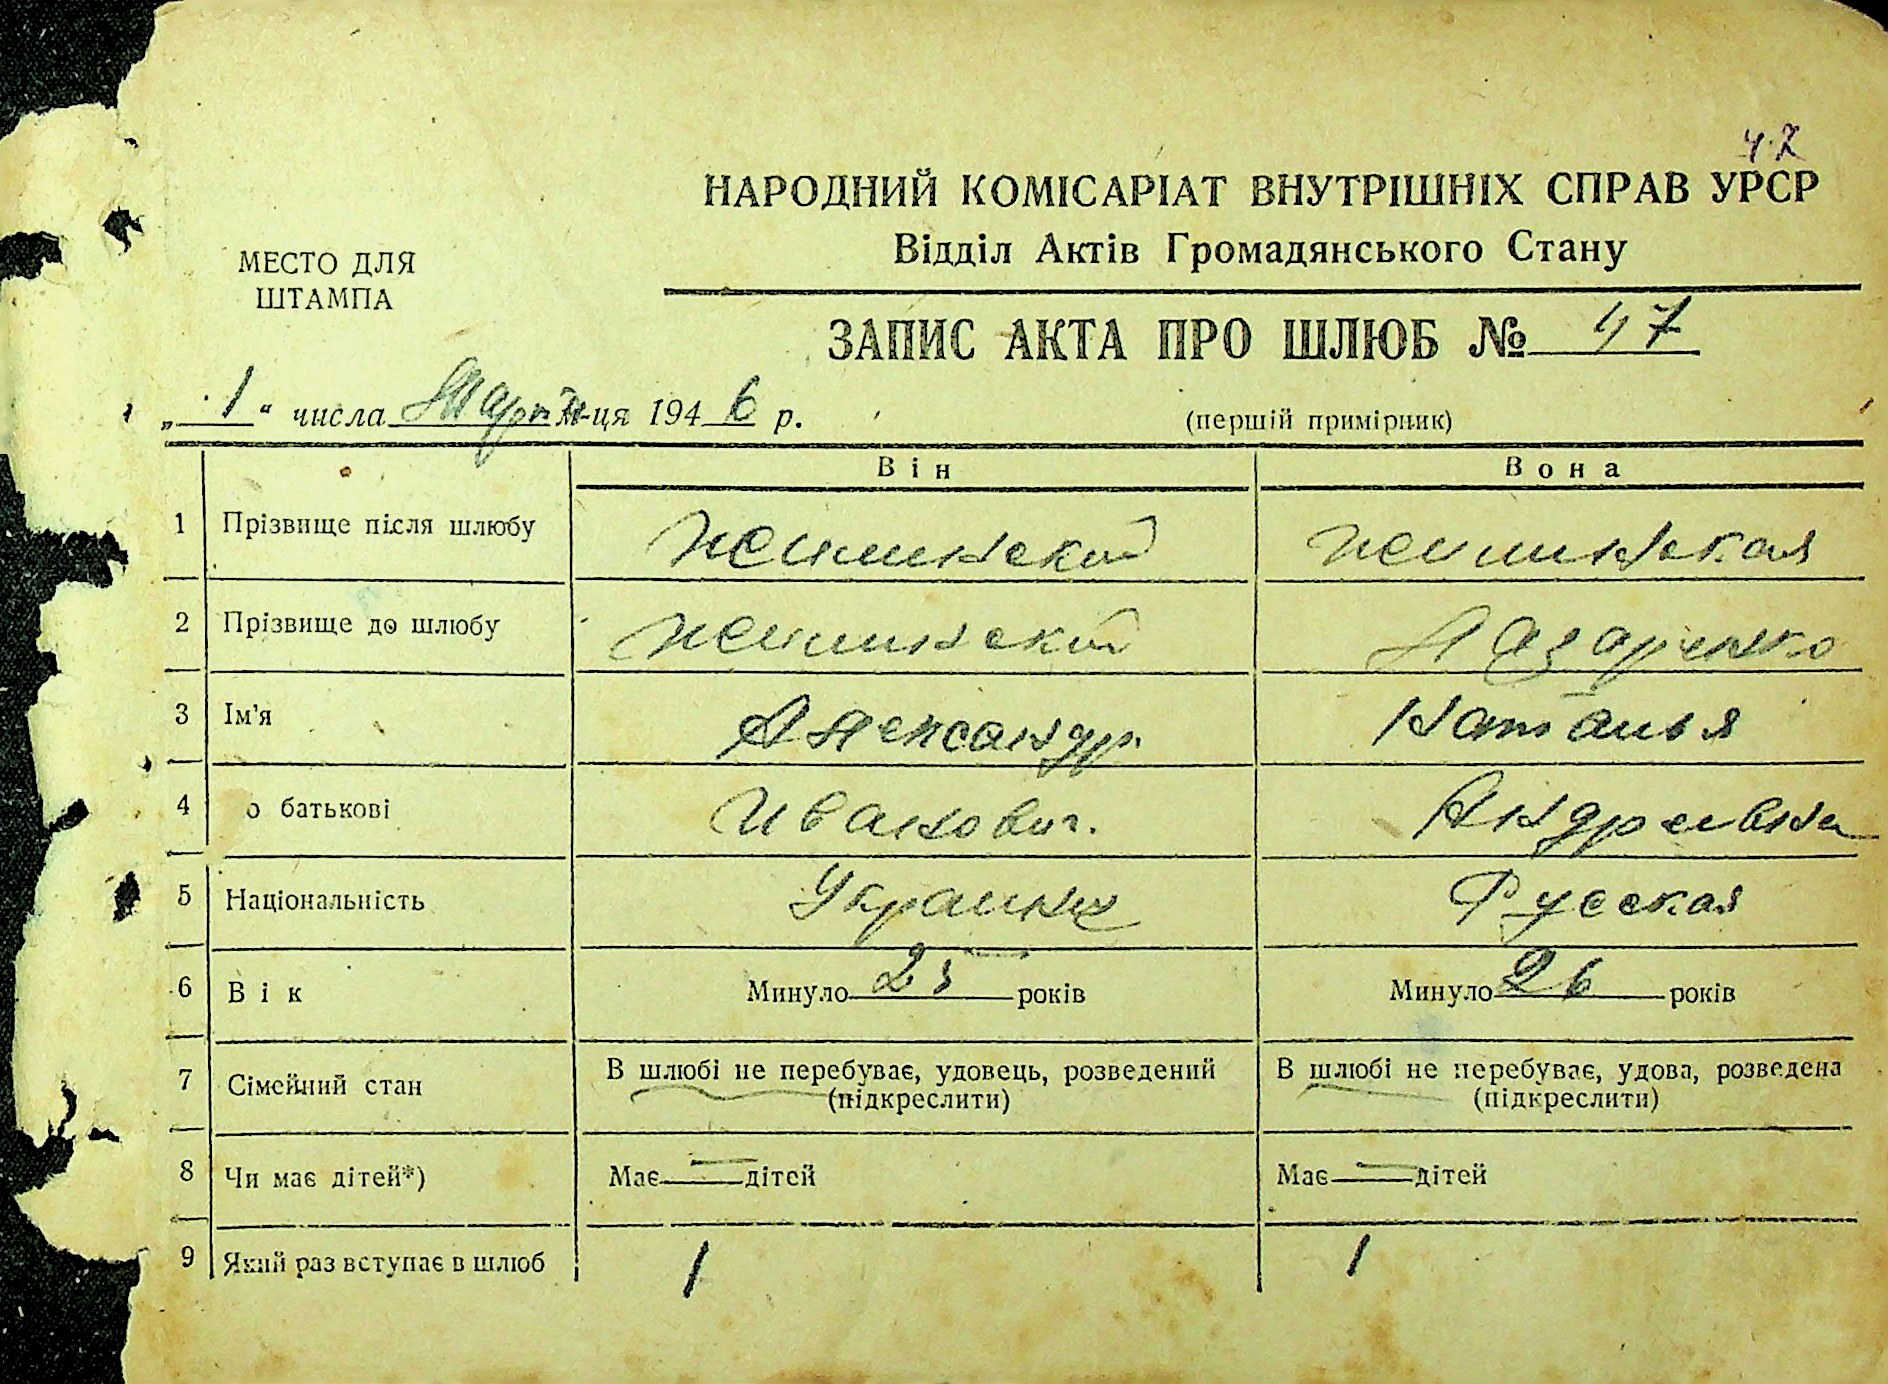 47
НАРОДНИЙ КОМІСАРІАТ ВНУТРІШНІХ СПРАВ УРСР
Відділ Актів Громадянського Стану
МЕСТО ДЛЯ
ШТАМПА
ЗАПИС АКТА ПРО ШЛЮБ № 47
„1“ числа Март м-ця 1946 р.
(першій примірник)
Він Вона
1 Прізвище після шлюбу
2 Прізвище до шлюбу Лазаренко
3 Ім'я Александр. Наталья
4 о батькові Иванович. Андреевна
5 Національність Украинец Русская
6 Вік Минуло 25 років Минуло 26 років
7 Сімейний стан В шлюбі не перебуває, удовець, розведений В шлюбі не перебуває, удова, розведена
(підкреслити) (підкреслити)
8 Чи має дітей*) Має — дітей Має — дітей
9 Який раз вступає в шлюб 1 1